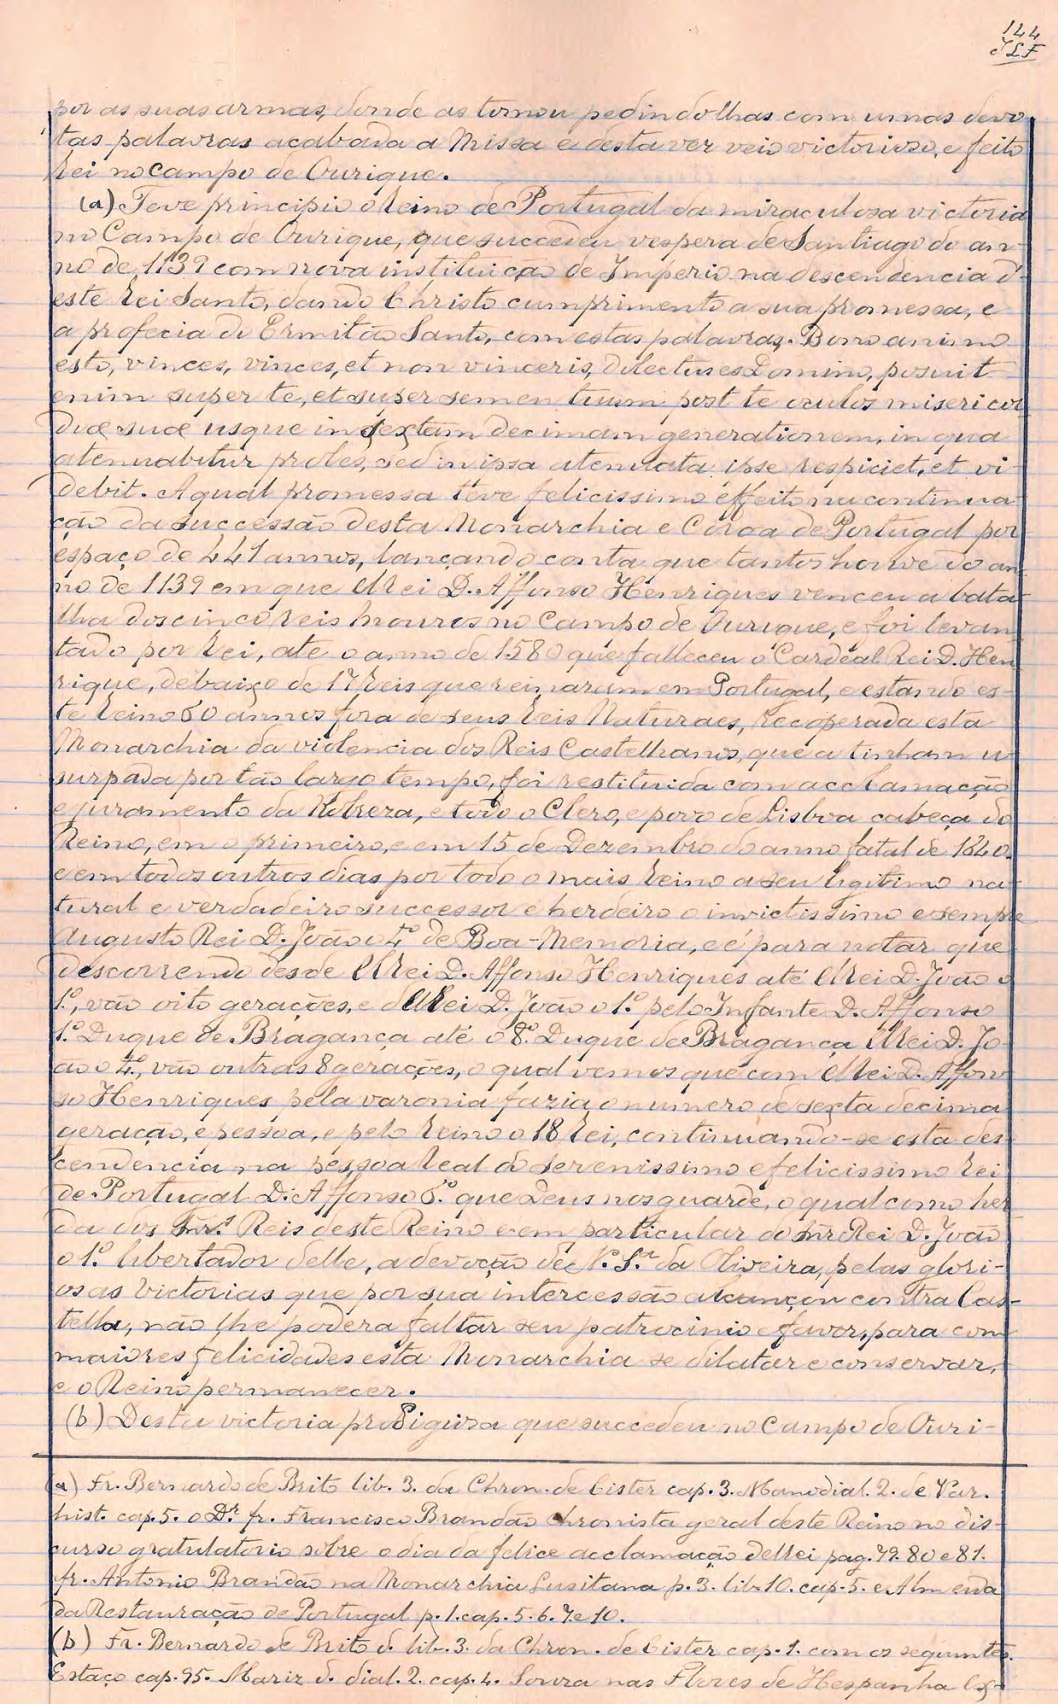 144
JLF
por as suas armas, donde as tornou pedindolhas com umas devo-
tas palavras acabada a Missa e desta vez veio victorioso, e feito
Rei no Campo de Ourique.
(a) Teve principio o Reino de Portugal da miraculosa victoria
no Campo de Ourique, que succedeu vespera de Santiago do an-
no de 1139 com nova instituição de Imperio na descendencia d'
este Rei Santo, dando Christo cumprimento a sua promessa, e
a profecia do Ermitão Santo, com estas palavras. Bono animo
esto, vinces, vinces, et non vinceris, dilectus es Domino, posuit
enim super te, et super semen tuum post te oculos misericor
diæ suæ usque in sextam decimam generationem, in qua
atenuabitur proles, sed in ipsa atenuata ipse respiciet, et vi-
debit. A qual promessa teve felicissimo effeito na continua-
ção da successão desta Monarchia e Coroa de Portugal por
espaço de 441 annos, lançando conta que tantos houve do an-
no de 1139 em que ElRei D. Affonso Henriques venceu a bata-
lha dos cinco reis mouros no Campo de Ourique, e foi levan-
tado por Rei, ate o anno de 1580 que falleceu o Cardeal Rei D. Hen
rique, debaixo de 17 Reis que reinaram em Portugal, e estando es-
te Reino 60 annos fora de seus Reis Naturaes, recoperada esta
Monarchia da violencia dos Reis Castelhanos, que a tinham u-
surpada por tão largo tempo, foi restituida com acclamação
e juramento da Nobreza, e todo o Clero, e povo de Lisboa cabeça do
Reino, em o primeiro, e em 15 de Dezembro do anno fatal de 1640,
e em todos outros dias por todo o mais Reino a seu legitimo na-
tural e verdadeiro successor e herdeiro o invictissimo e sempre
Augusto Rei D. João o 4º de Boa-Memoria, e é para notar que
descorrendo desde ElRei D. Affonso Henriques até ElRei D. João o
1º, vão oito gerações, e d'ElRei D. João o 1º pelo Infante D. Affonso
1º Duque de Bragança até o 8º Duque de Bragança ElRei D. Jo-
ão o 4º, vão outras 8 gerações, o qual vemos que com ElRei D. Affon
so Henriques pela varonia fazia o numero de sexta decima
geração, e pessoa, e pelo Reino o 18 Rei, continuando-se esta des-
cendencia na pessoa Real do serenissimo e felicissimo Rei
de Portugal D. Affonso 6º que Deus nos guarde, o qual como her
da dos Snr.s Reis deste Reino e em particular do Snr Rei D. João
o 1º libertador delle, a devoção de N. S.ra da Oliveira, pelas glori-
osas victorias que por sua intercessão alcançou contra Cas-
tella, não lhe poderá faltar seu patrocinio e favor, para com
maiores felicidades esta Monarchia se dilatar e conservar,
e o Reino permanecer.
(b) Desta victoria prodigiosa que succedeu no Campo de Ouri-
(a) Fr. Bernardo de Brito lib. 3. da Chron. de Cister cap. 3. Mariz dial. 2. de Var.
hist. cap. 5. o D.r fr. Francisco Brandão chronista geral deste Reino no dis-
curso gratulatorio sobre o dia da felice acclamação delRei pag. 79. 80 e 81.
fr. Antonio Brandão na Monarchia Lusitana p. 3. lib. 10. cap. 5. e Almeida
da Restauração de Portugal p. 1. cap. 5. 6. 7. e 10.
(b) Fr. Bernardo de Brito d. lib. 3. da Chron. de Cister cap. 1. com os seguintes.
Estaço cap. 95. Mariz d. dial. 2. cap. 4. Souza nas Flores de Hespanha Ex-